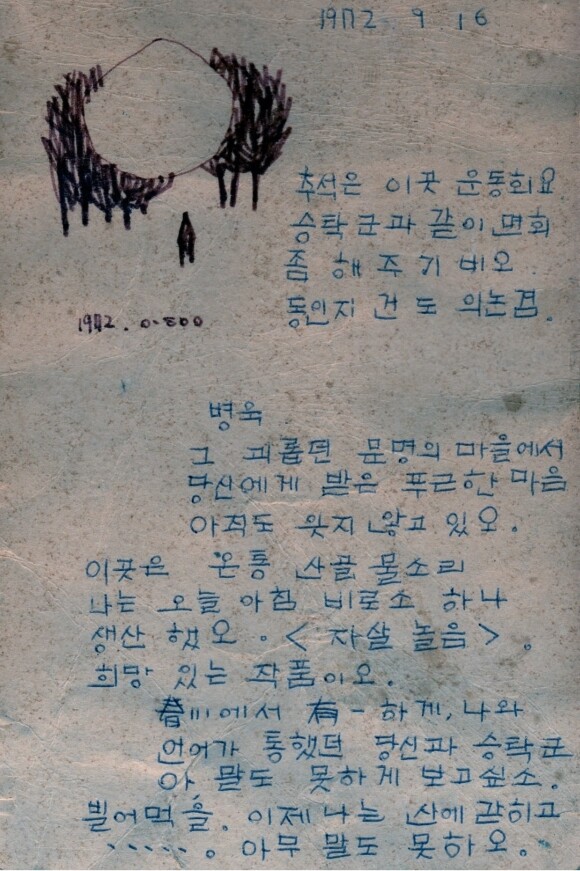 1972 9 16
추석은 이곳 운동회요
승탁군과 같이 면회
좀 해 주기 비오
동인지 건도 의논겸.
1972.
병욱
그 괴롭던 문명의 마을에서
당신에게 받은 푸근한 마음
아직도 잊지 않고 있오.
이곳은 온통 산골 물소리
나는 오늘 아침 비로소 하나
생산 했오. <자살 놀음>.
희망 있는 작품이오.
春川에서 有一하게, 나와
언어가 통했던 당신과 승탁군
아 말도 못하게 보고싶소.
빌어먹을. 이제 나는 산에 갇히고
...... 아무 말도 못하오.